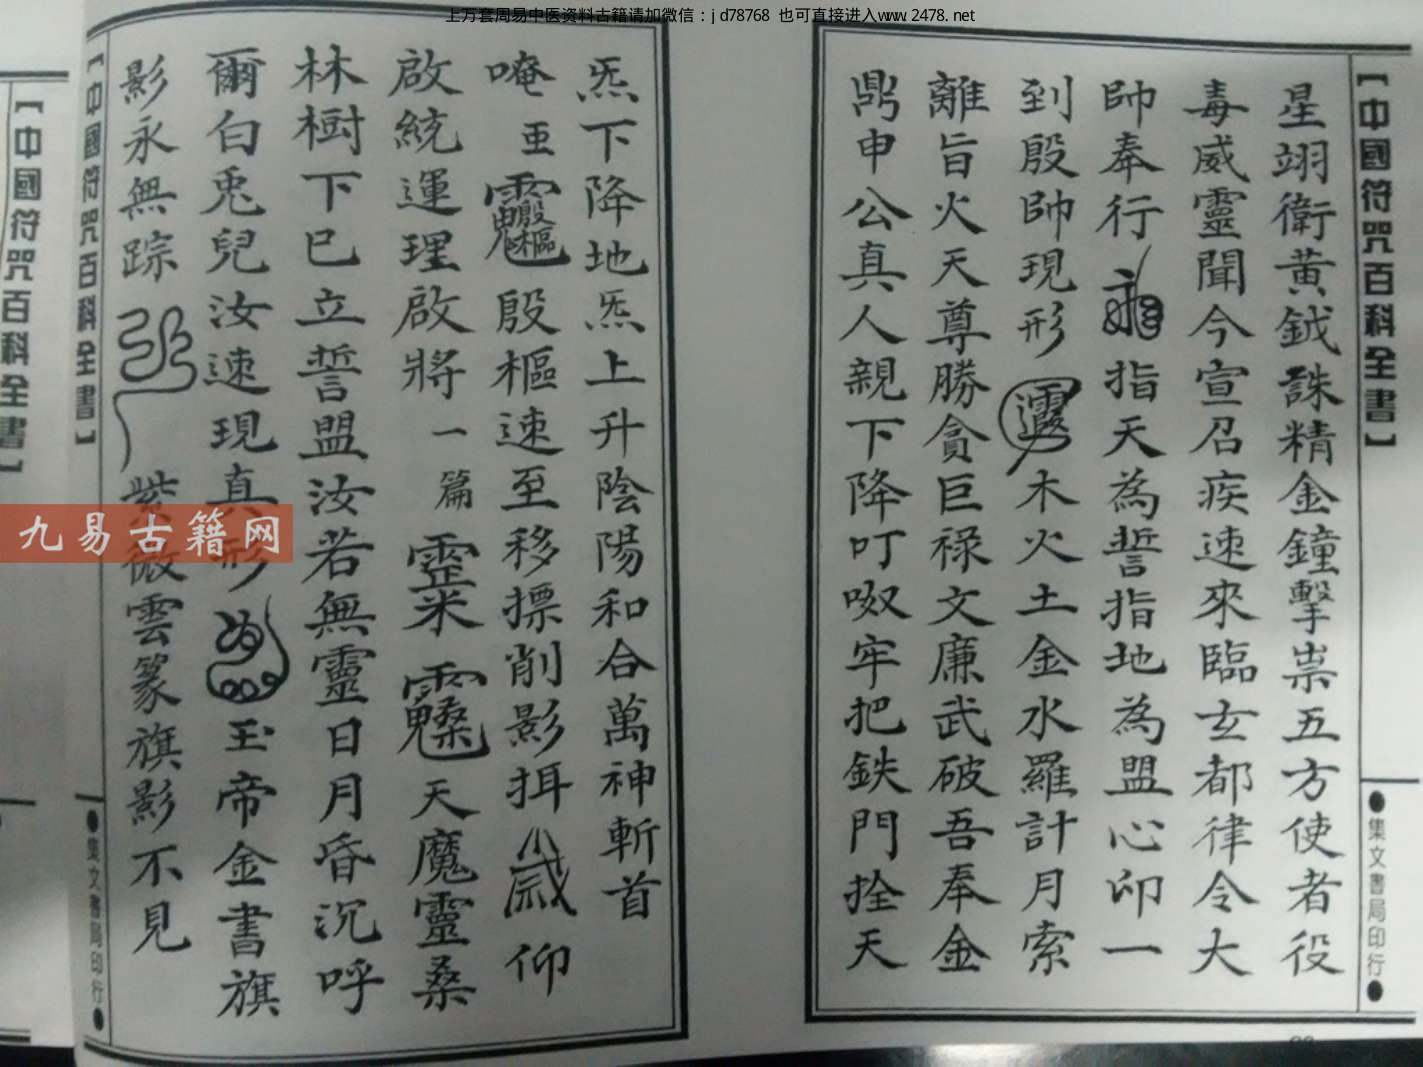 上万套周易中医资料古籍请加微信：jd78768 也可直接进入www.2478.net
【中國符咒百科全書】
星翊衛黃鉞誅精金鐘擊祟五方使者役
毒威靈聞今宣召疾速來臨玄都律令大
帥奉行 指天為誓指地為盟心印一
到殷帥現形 木火土金水羅計月索
離旨火天尊勝貪巨祿文廉武破吾奉金
鼎申公真人親下降叮呶牢把鉄門拴天
●集文書局印行●
炁下降地炁上升陰陽和合萬神斬首
唵亜 殷樞速至移摽削影揖 仰
啟統運理啟將一篇 天魔靈桑
林樹下已立誓盟汝若無靈日月昏沉呼
爾白兎兒汝速現真形 玉帝金書旗
影永無踪 紫微雲篆旗影不見
【中國符咒百科全書】
●集文書局印行●
【中國符咒百科全書】
九易古籍网